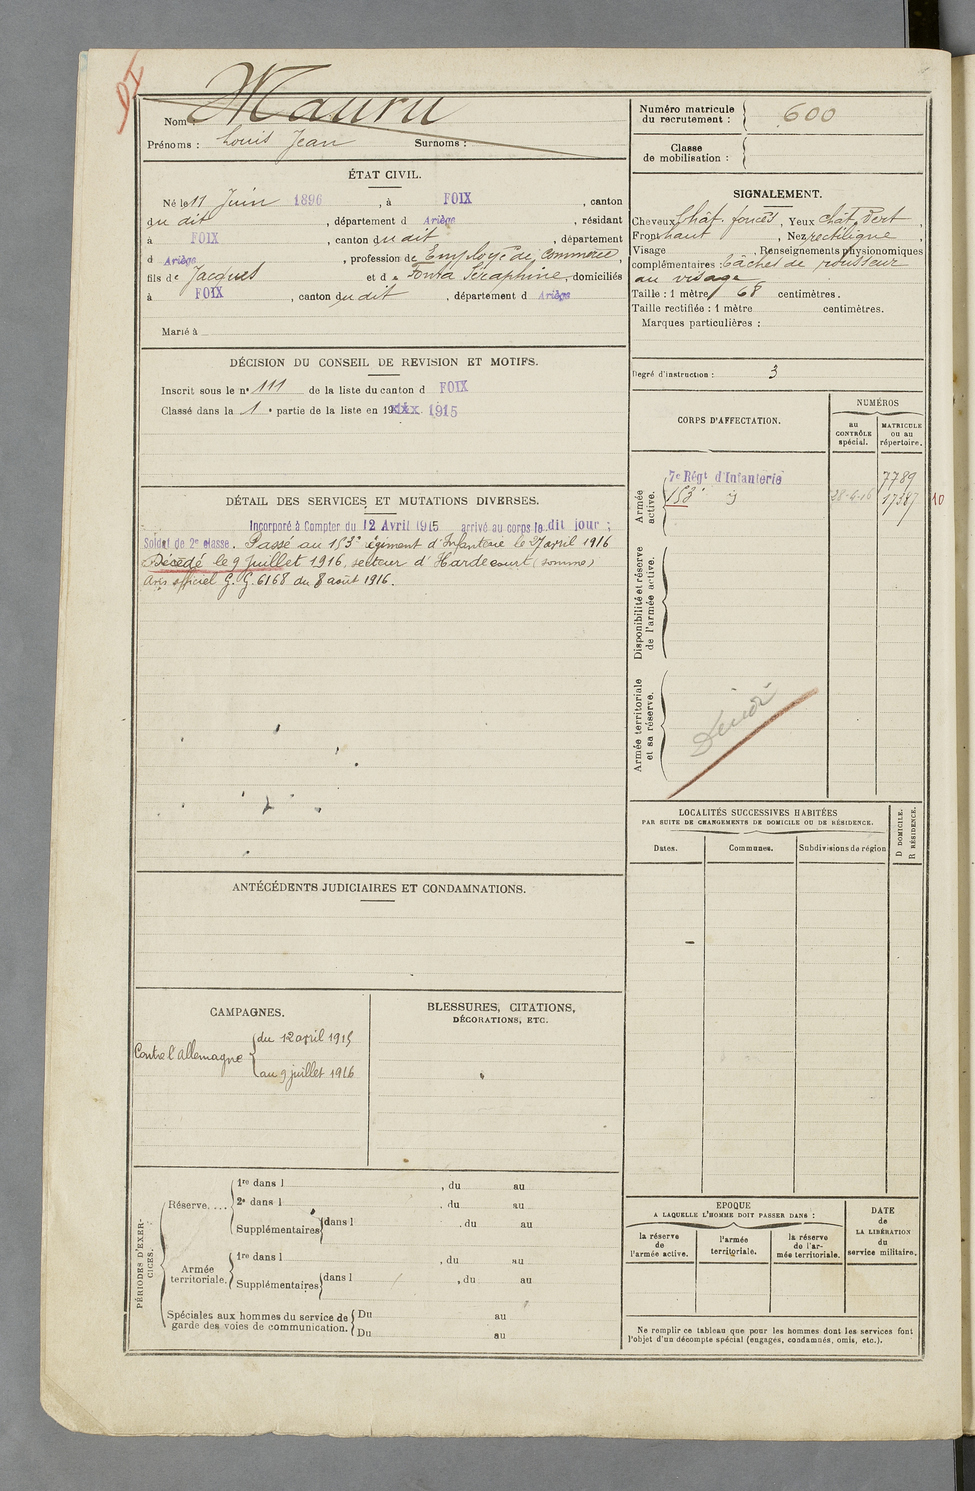 Nom : Mauru
Prénoms : Louis Jean Surnoms :
Numéro matricule du recrutement : 600
Classe de mobilisation :
ÉTAT CIVIL.
Né le 11 Juin 1896, à FOIX, canton
du dit, département d Ariège, résidant
à FOIX, canton du dit, département
d Ariège, profession de Employé de commerce,
fils de Jacques et d e Fonta Séraphine, domiciliés
à FOIX, canton du dit, département d Ariège
Marié à
SIGNALEMENT.
Cheveux Chât. foncés, Yeux chât. vert,
Front haut, Nez rectiligne,
Visage, Renseignements physionomiques
complémentaires : tâches de rousseur
au visage
Taille : 1 mètre 68 centimètres.
Taille rectifiée : 1 mètre centimètres.
Marques particulières :
Degré d'instruction : 3
DÉCISION DU CONSEIL DE REVISION ET MOTIFS.
Inscrit sous le n° 111 de la liste du canton d FOIX
Classé dans la 1e partie de la liste en 19 1915
CORPS D'AFFECTATION.
NUMÉROS
au CONTRÔLE spécial.
MATRICULE ou au répertoire.
Armée active.
7e Régt d'Infanterie 7789
153e 28-4-16 17387 10
Disponibilité et réserve de l'armée active.
Armée territoriale et sa réserve.
Décédé
DÉTAIL DES SERVICES ET MUTATIONS DIVERSES.
Incorporé à Compter du 12 Avril 1915 arrivé au corps le dit jour ;
Soldat de 2e classe. Passé au 153e régiment d'Infanterie le 27 avril 1916
Décédé le 9 Juillet 1916, secteur d'Hardecourt (Somme)
Avis officiel G.G. 6168 du 8 août 1916.
LOCALITÉS SUCCESSIVES HABITÉES
PAR SUITE DE CHANGEMENTS DE DOMICILE OU DE RÉSIDENCE.
Dates. Communes. Subdivisions de région
D DOMICILE.
R RÉSIDENCE.
ANTÉCÉDENTS JUDICIAIRES ET CONDAMNATIONS.
CAMPAGNES.
Contre l'Allemagne
du 12 avril 1915
au 9 juillet 1916
BLESSURES, CITATIONS,
DÉCORATIONS, ETC.
PÉRIODES D'EXERCICES.
Réserve....
1re dans l , du au
2e dans l , du au
Supplémentaires dans l , du au
Armée territoriale.
1re dans l , du au
Supplémentaires dans l , du au
Spéciales aux hommes du service de
garde des voies de communication.
Du au
Du au
EPOQUE
A LAQUELLE L'HOMME DOIT PASSER DANS :
la réserve de l'armée active.
l'armée territoriale.
la réserve de l'armée territoriale.
DATE de LA LIBÉRATION du service militaire.
Ne remplir ce tableau que pour les hommes dont les services font
l'objet d'un décompte spécial (engagés, condamnés, omis, etc.).